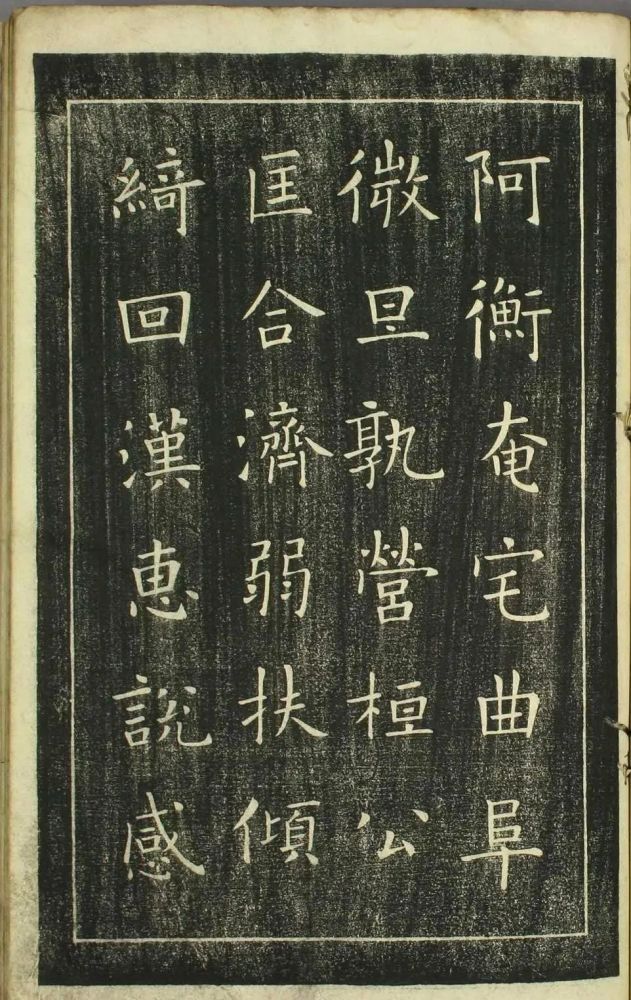 阿衡奄宅曲阜
微旦孰營桓公
匡合濟弱扶傾
綺回漢恵說感